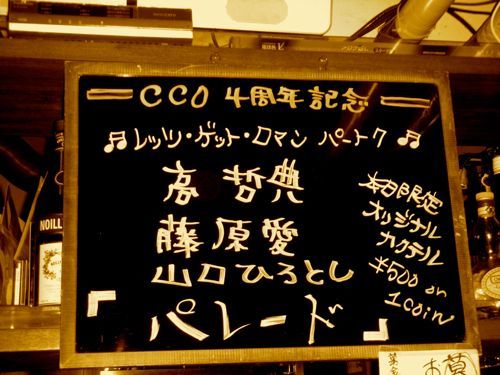 CCO 4周年記念
♫レッツ・ゲット・ロマン パート7♫
高 哲典
藤原愛
山口ひろとし
『パレード』
本日限定
オリジナル
カクテル
¥500 or
1coin
NOILL